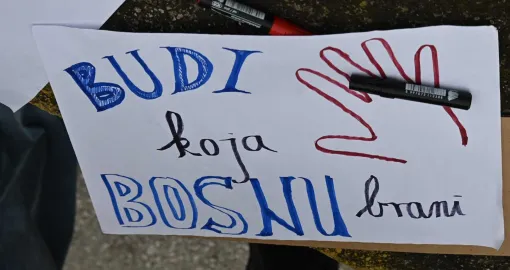 BUDI
koja
BOSNU brani